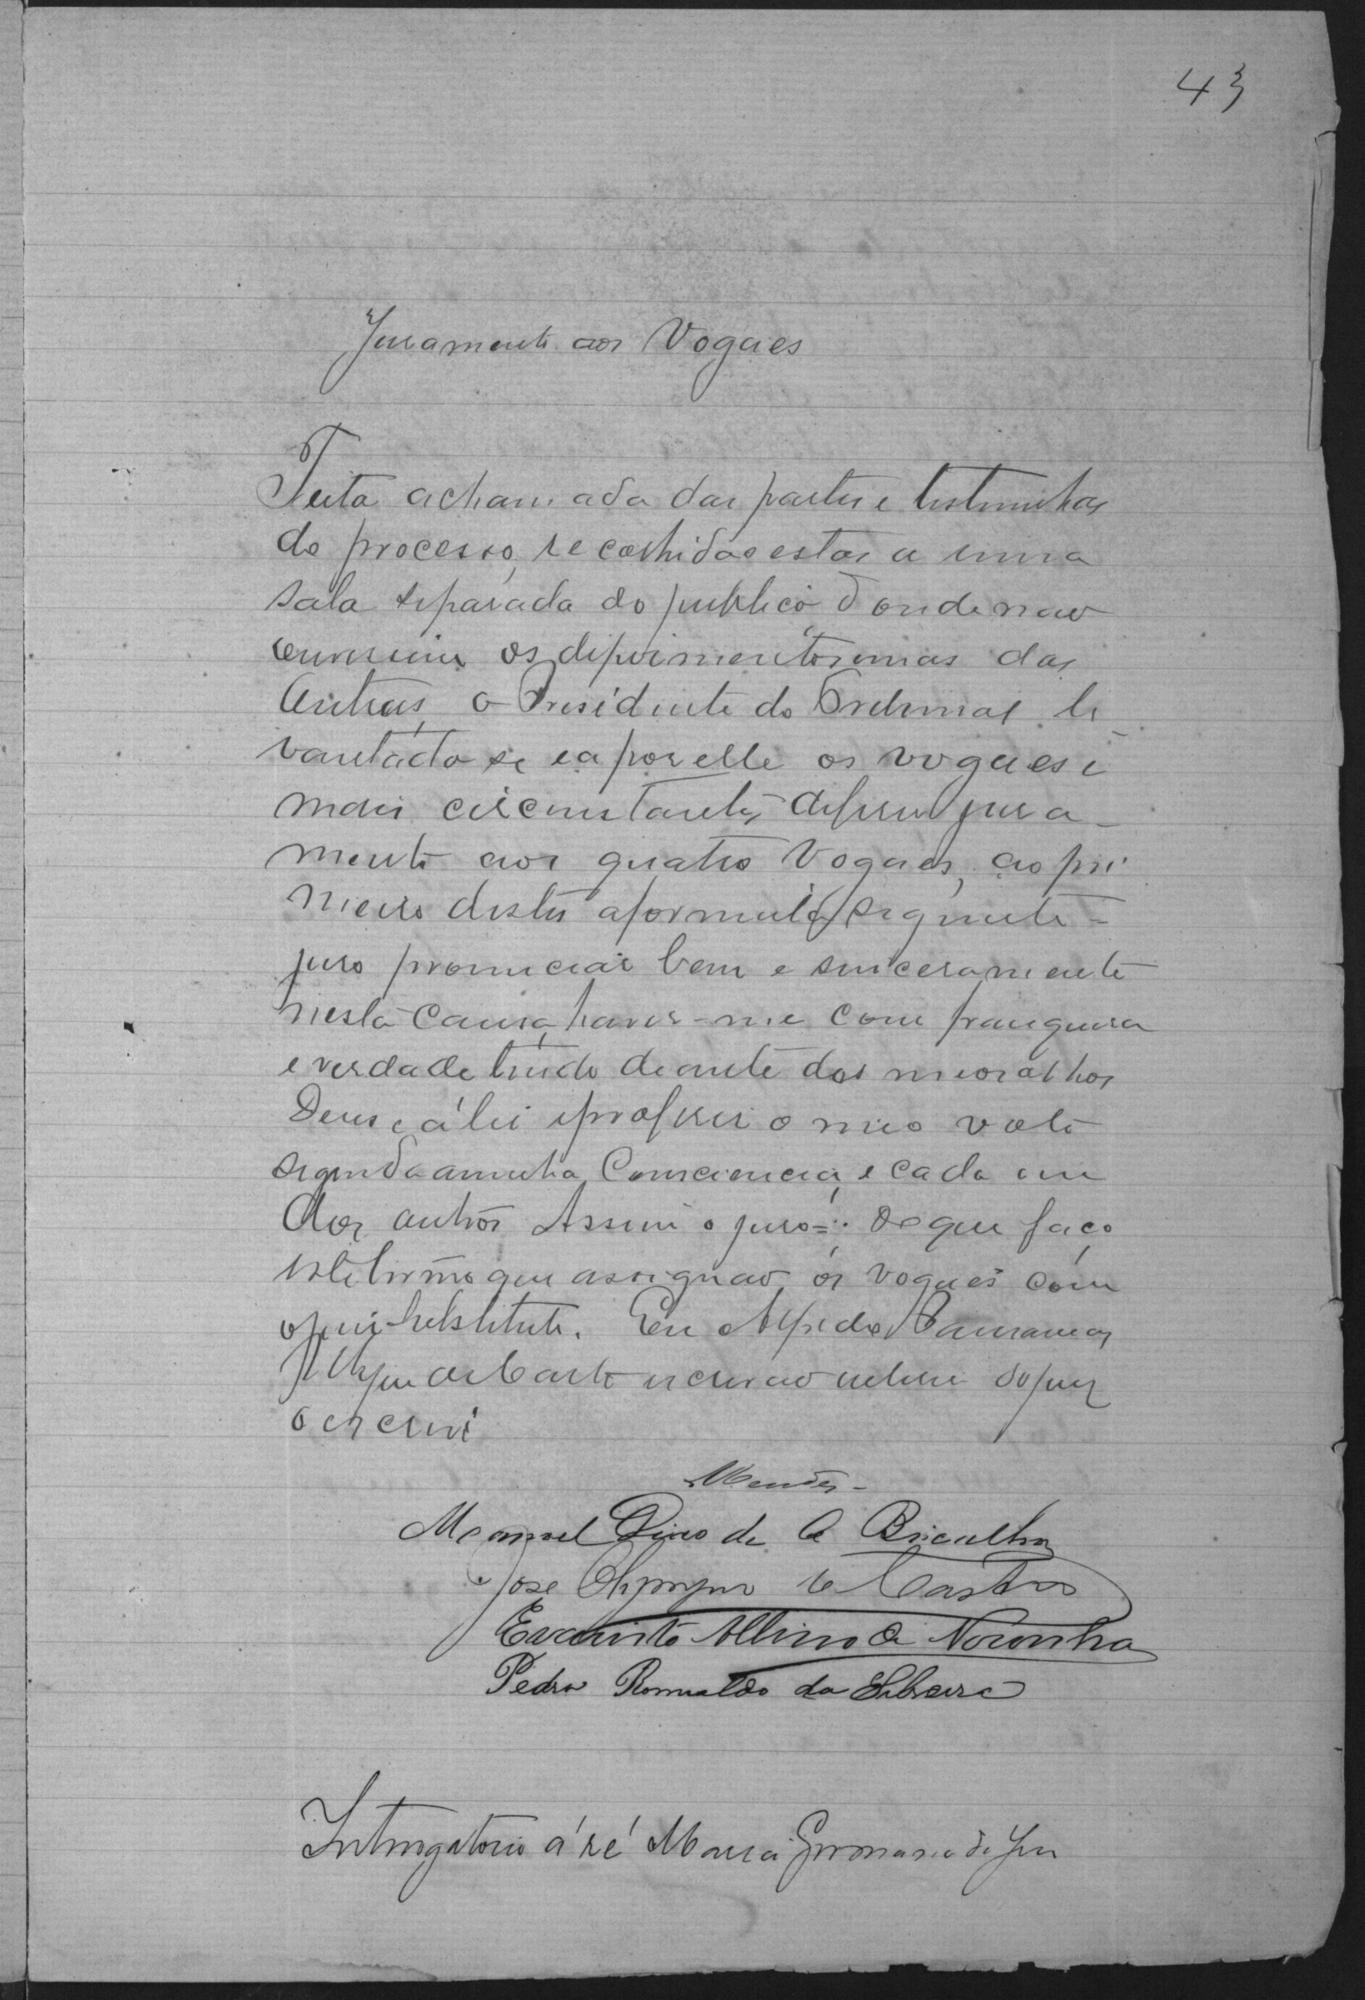 43
Juramento aos Vogaes
Feita achamada das partes e testemunhas
do processo, recolhidas estas a uma
sala separada do publico, d'onde nao
ouvissem os depoimentos umas das
outras, o Presidente do Tribunal le
vantado se e a por elle os vogaes e
mais circunstantes, deferiu jura-
mento aos quatro Vogaes, ao pri
meiro destes a formula seguinte -
juro pronunciar bem e sinceramente
nesta causa, haver-me com franqueza
e verdade tendo deante dos meus olhos
Deus e á lei e proferir o meu voto
segundo a minha Consciencia, e cada um
dos outros Assim o juro=. De que faço
este termo que assignão os vogaes com
o juiz substituto. Eu Alfredo
escrivão do juiz
o escrevi
Mendes -
Manoel Pires de
José Olympio de Castro
Evaristo Albino de Noronha
Pedro Romualdo da Silveira
Interrogatorio á ré Maria de Jesu